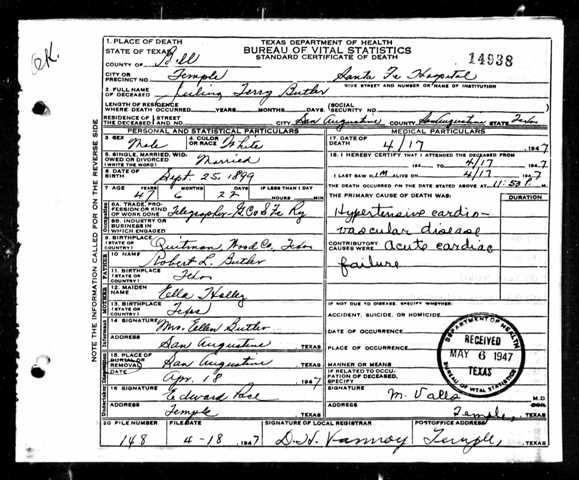 OK.
TEXAS DEPARTMENT OF HEALTH
BUREAU OF VITAL STATISTICS
STANDARD CERTIFICATE OF DEATH
14938
1. PLACE OF DEATH
STATE OF TEXAS
COUNTY OF Bell
CITY OR PRECINCT NO. Temple Santa Fe Hospital
GIVE STREET AND NUMBER OR NAME OF INSTITUTION
2. FULL NAME OF DECEASED Terry Butler
LENGTH OF RESIDENCE WHERE DEATH OCCURRED YEARS MONTHS DAYS (SOCIAL SECURITY NO.
RESIDENCE OF THE DECEASED (STREET AND NO. CITY San Augustine COUNTY San Augustine STATE Texas
NOTE THE INFORMATION CALLED FOR ON THE REVERSE SIDE
PERSONAL AND STATISTICAL PARTICULARS
3. SEX Male 4. COLOR OR RACE White
5. SINGLE, MARRIED, WIDOWED OR DIVORCED (WRITE THE WORD) Married
6. DATE OF BIRTH Sept. 25, 1899
7. AGE YEARS MONTHS DAYS IF LESS THAN 1 DAY
47 6 22 HOURS MIN.
8A. TRADE, PROFESSION OR KIND OF WORK DONE Telegrapher-G C & S Fe Ry
8B. INDUSTRY OR BUSINESS IN WHICH ENGAGED
9. BIRTHPLACE (STATE OR COUNTRY) Quitman, Wood Co, Texas
FATHER
10 NAME Robert L. Butler
11. BIRTHPLACE (STATE OR COUNTRY) Texas
MOTHER
12. MAIDEN NAME Ella Holley
13. BIRTHPLACE (STATE OR COUNTRY) Texas
14 SIGNATURE Mrs. Ellen Butler
ADDRESS San Augustine TEXAS
15. PLACE OF BURIAL OR REMOVAL San Augustine TEXAS
DATE Apr. 18 1947
16 SIGNATURE Edward Pace
ADDRESS Temple TEXAS
MEDICAL PARTICULARS
17. DATE OF DEATH 4/17 1947
18. I HEREBY CERTIFY THAT I ATTENDED THE DECEASED FROM
4/17 1947
I LAST SAW him ALIVE ON 4/17 1947
THE DEATH OCCURRED ON THE DATE STATED ABOVE AT 11:50 P. M.
THE PRIMARY CAUSE OF DEATH WAS: DURATION
Hypertensive cardio-
vascular disease
CONTRIBUTORY CAUSES WERE: Acute cardiac
failure
IF NOT DUE TO DISEASE, SPECIFY WHETHER:
ACCIDENT, SUICIDE, OR HOMICIDE
DATE OF OCCURRENCE
PLACE OF OCCURRENCE
MANNER OR MEANS
IF RELATED TO OCCUPATION OF DECEASED, SPECIFY
DEPARTMENT OF HEALTH
RECEIVED
MAY 6 1947
TEXAS
BUREAU OF VITAL STATISTICS
SIGNATURE M. Valls M.D.
ADDRESS Temple, TEXAS
20 FILE NUMBER FILE DATE SIGNATURE OF LOCAL REGISTRAR POSTOFFICE ADDRESS
148 4-18 1947 Temple, TEXAS